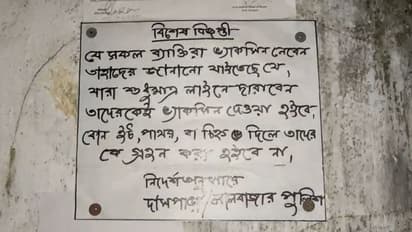 বিশেষ বিজ্ঞপ্তী
যে সকল ব্যাক্তিরা ভ্যাকসিন নেবেন
তাহাদের জানানো যাইতেছে যে,
যারা শুধুমাত্র লাইনে দাঁরাবেন
তাদেরকেই ভ্যাকসিন দেওয়া হইবে,
কোন ইট, পাথর, বা চিহ্ন দিলে তাদের
কে গ্রহন করা হইবে না,
নির্দেশঅনুসারে
দাসপাড়া পুলিশ